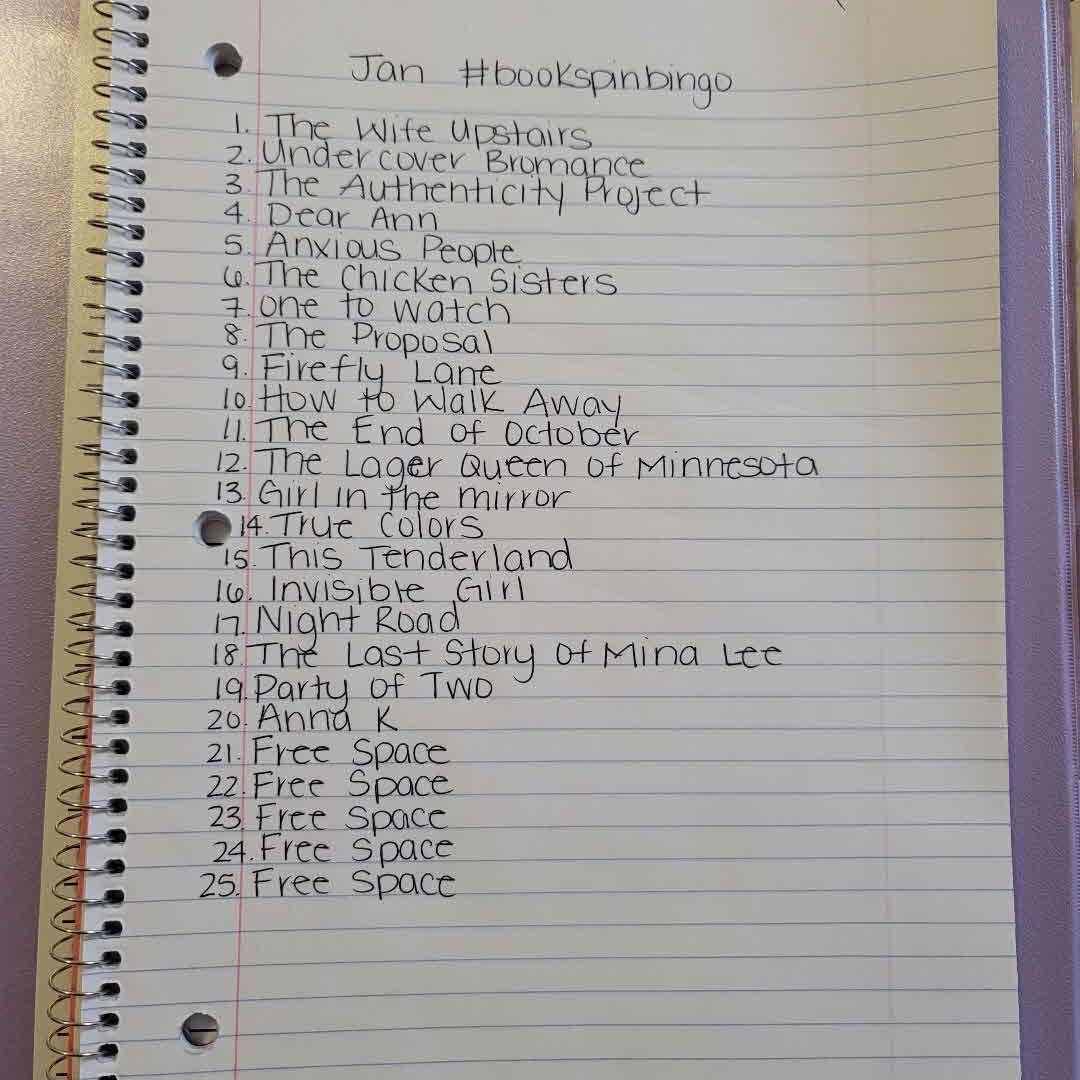 Jan #bookspinbingo
1. The Wife Upstairs
2. Undercover Bromance
3. The Authenticity Project
4. Dear Ann
5. Anxious People
6. The Chicken Sisters
7. One to Watch
8. The Proposal
9. Firefly Lane
10. How to Walk Away
11. The End of October
12. The Lager Queen of Minnesota
13. Girl in the mirror
14. True Colors
15. This Tenderland
16. Invisible Girl
17. Night Road
18. The Last Story of Mina Lee
19. Party of Two
20. Anna K
21. Free Space
22. Free Space
23. Free Space
24. Free Space
25. Free Space